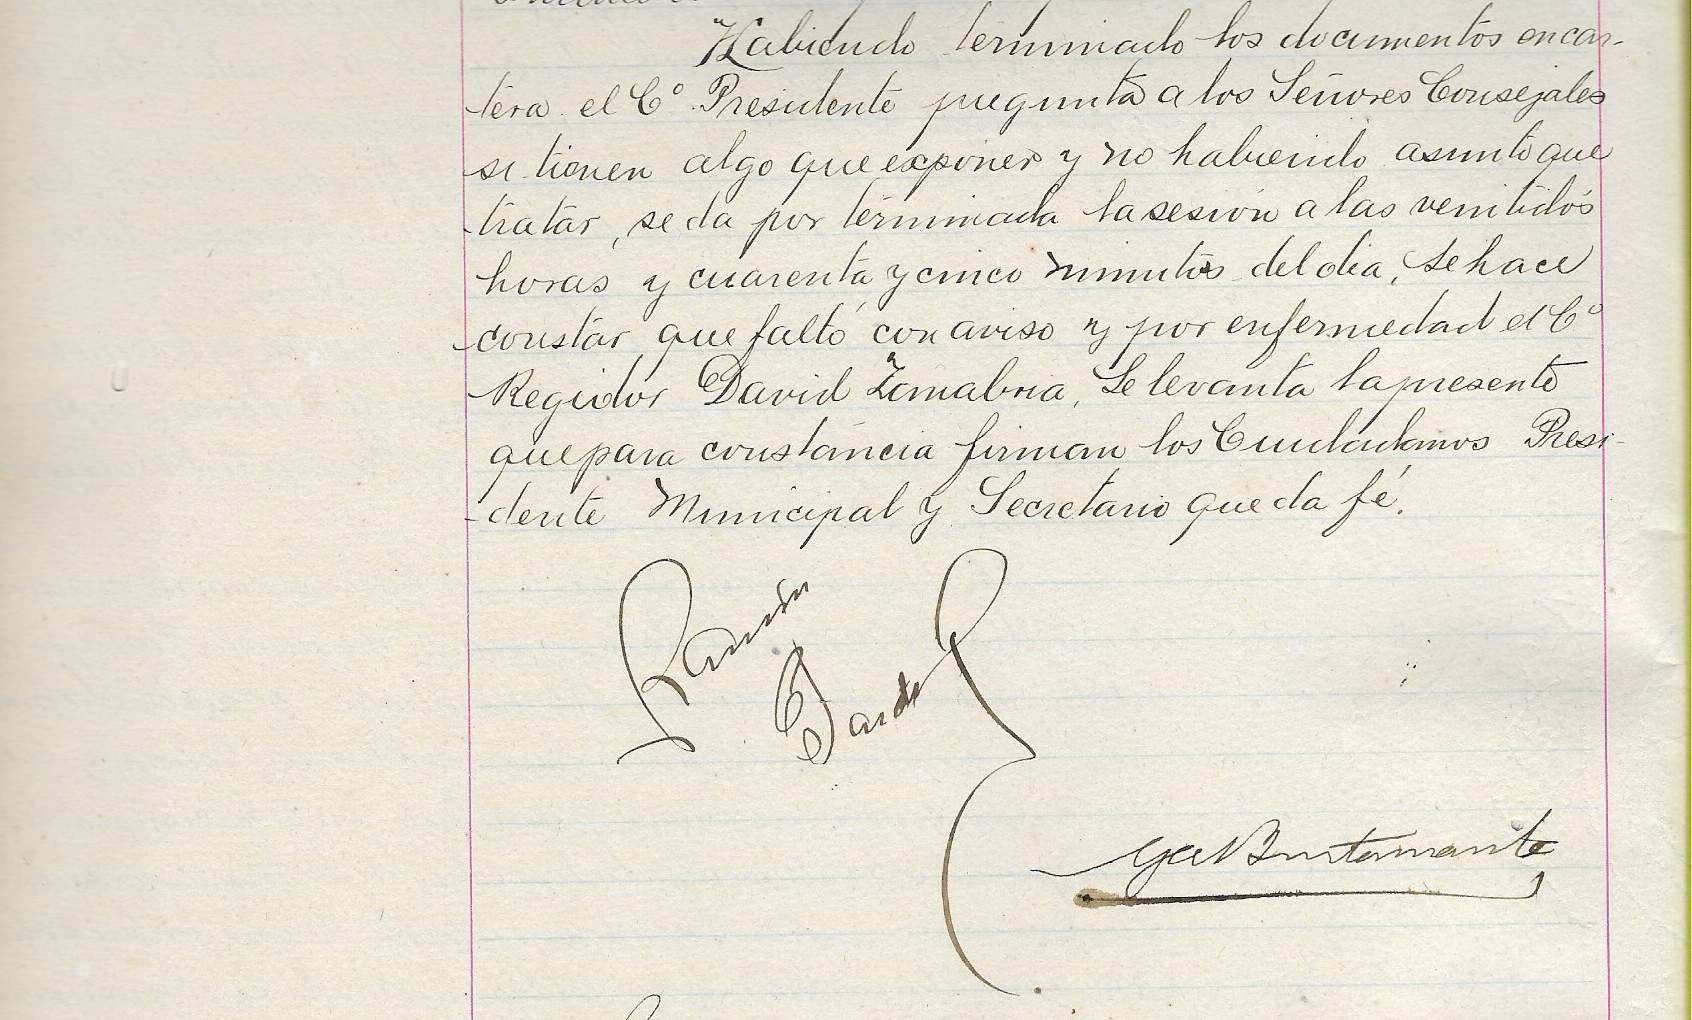 Habiendo terminado los documentos en car-
tera el C° Presidente pregunta a los Señores Consejales
si tienen algo que exponer y no habiendo asunto que
tratar, se da por terminada la sesión a las veintidós
horas y cuarenta y cinco minutos del dia, Se hace
constar que faltó con aviso y por enfermedad el C°
Regidor David Zanabria, Se levanta la presente
que para constancia firman los Ciudadanos Presi-
dente Municipal y Secretario que da fé.
Ramón
Pardo
Bustamante